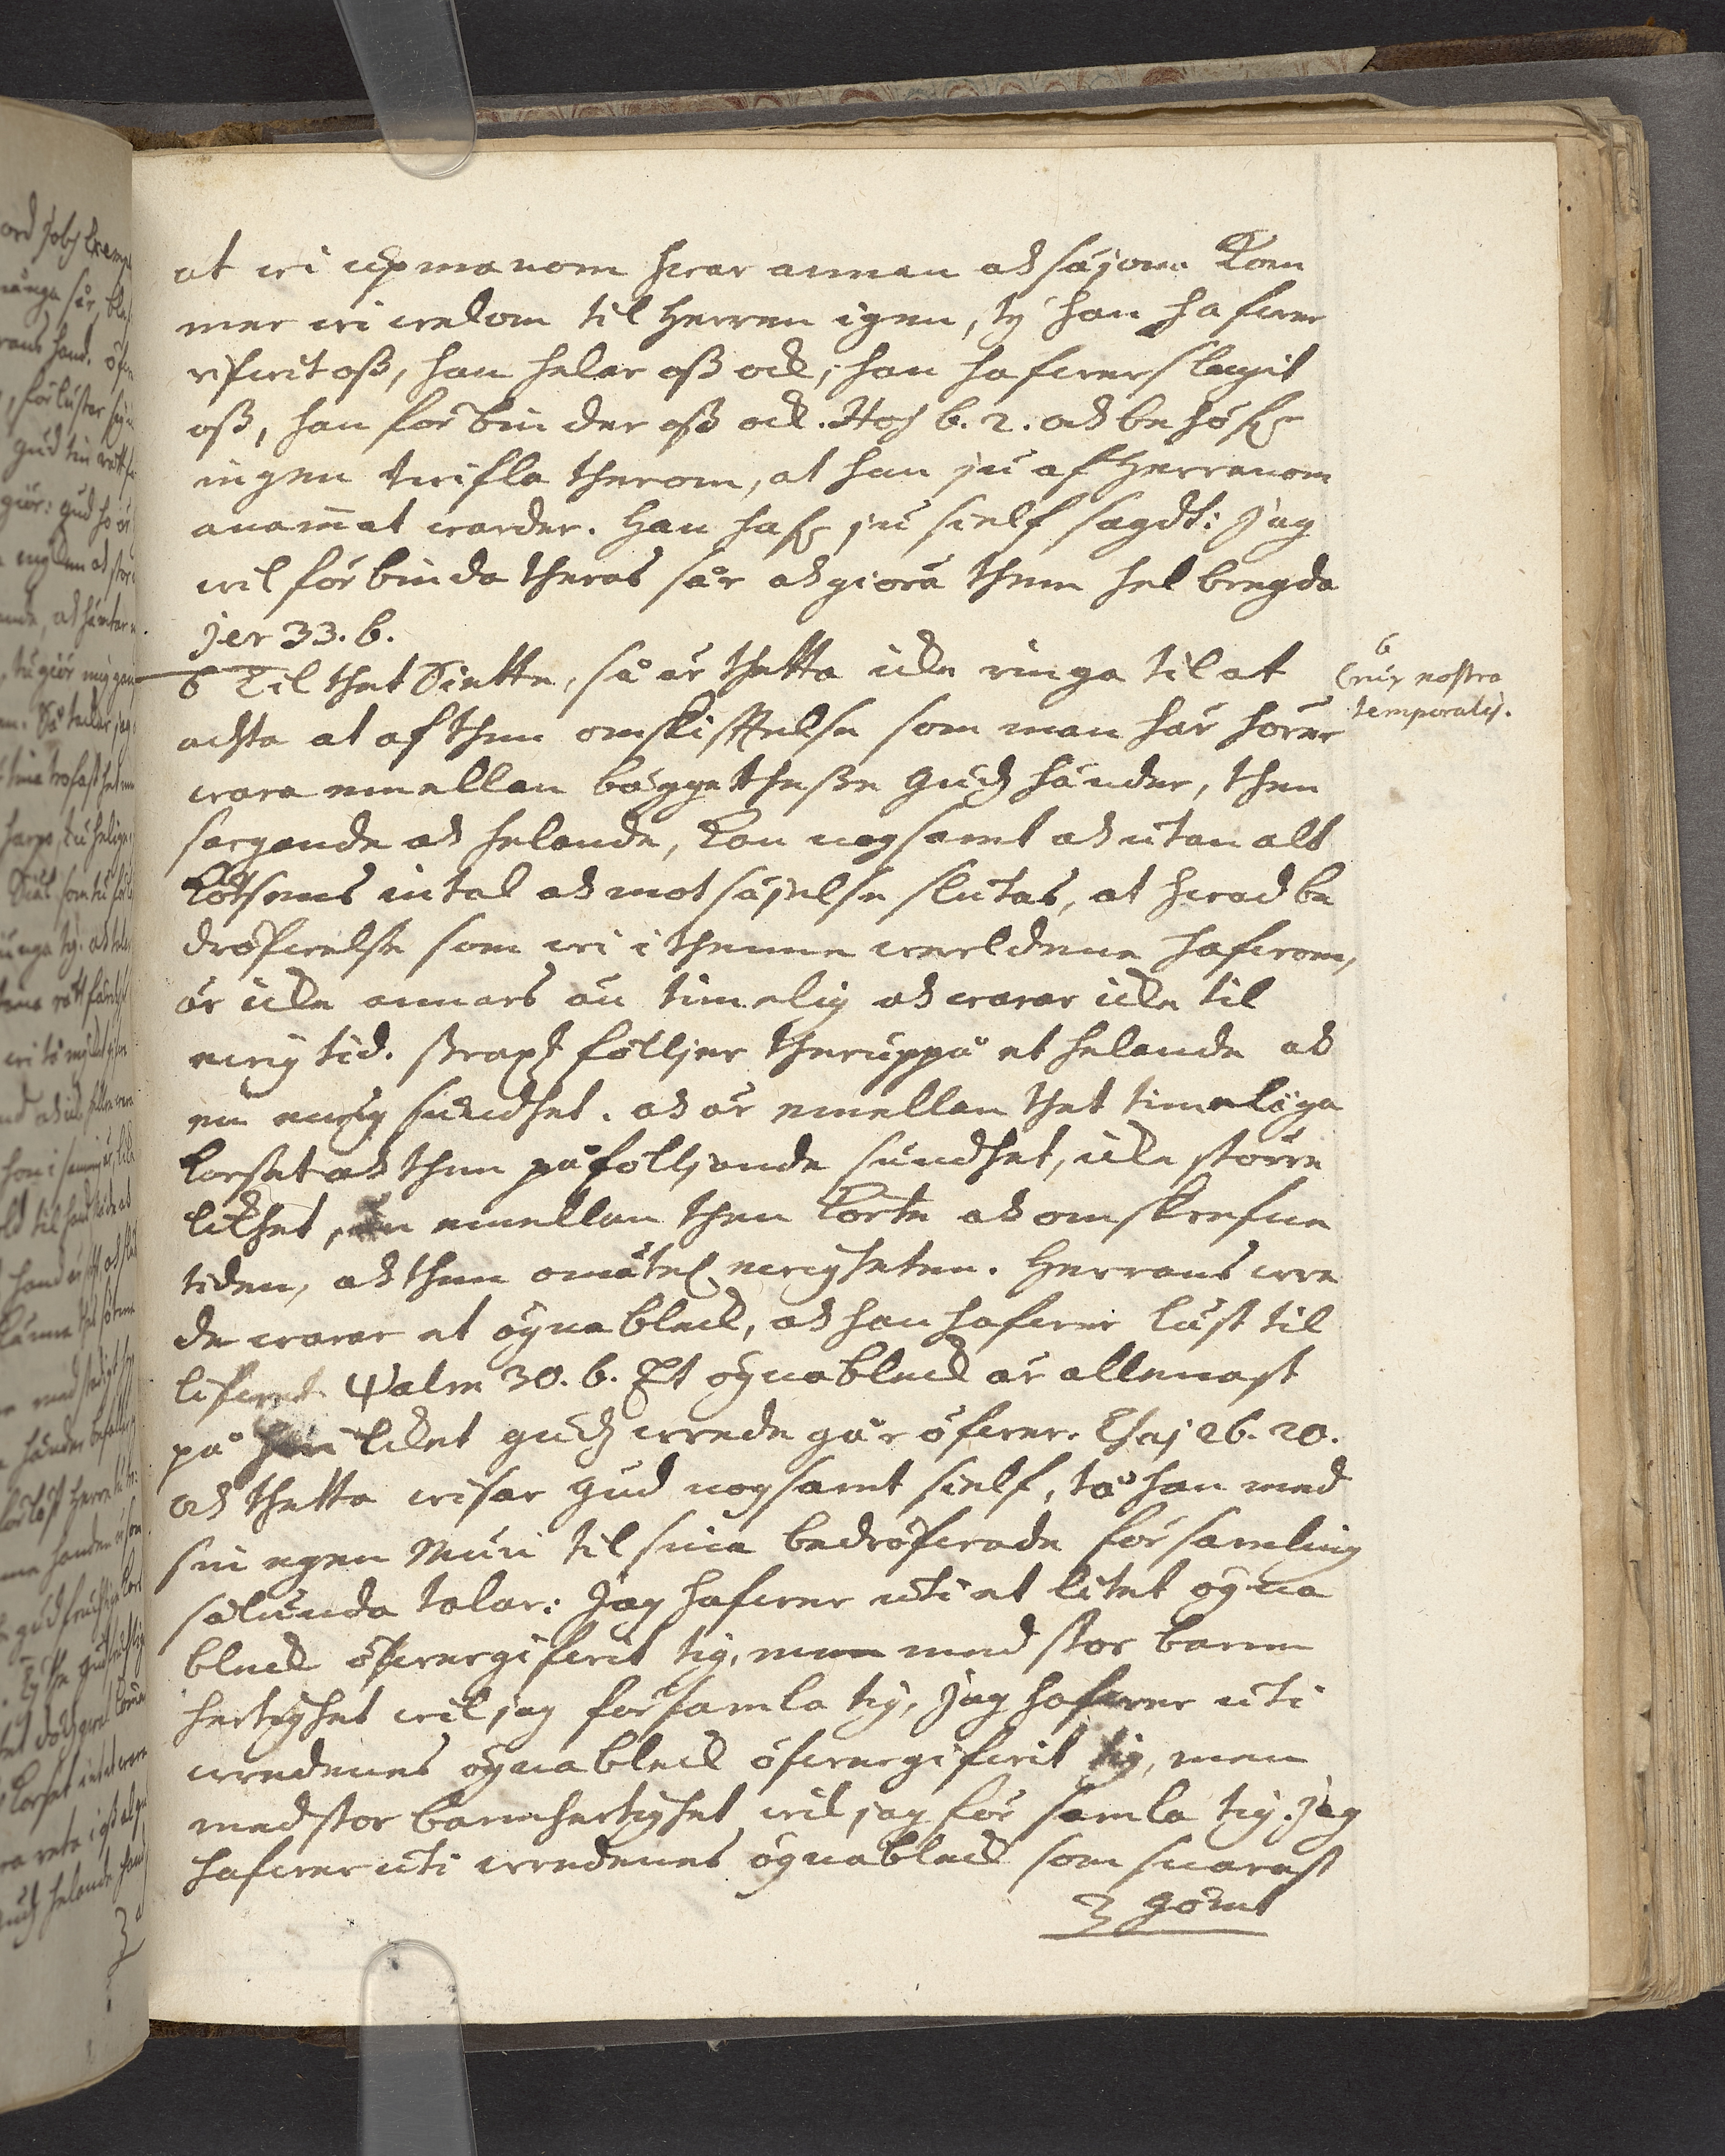 at wi upmanom hwar annan och säjom: Kom
mer wi welom til Herren igen, ty han hafwer
rifwit oß, han helar oß ock, han hafwer slagit
oß, han förbinder oß ock. Hos 6. 2. och behöf:r
ingen twifla therom, at han ju af Herranom
anam̄at warder. Han haf:r ju sielf sagdt: Jag
wil förbinda theras sår och giöra them helbregda
Jer 33. 6.
6 Til thet Siette, så är thetta icke ringa til at
achta at af then omskiftelse som man här hörer
wara emellan bägge theße Gudz händer, then
sargande och helande, kan nogsamt och utan alt
Kötsens intal och motsäjelse slutas, at hwad be
dröfwelse som wi i thenne werldene hafwom,
är icke annars än timelig och warar icke til
ewig tid. straxt fölljer theruppå et helande och
en ewig sundhet. och är emellan thet timeliga
Korset och then påfölljande sundhet, icke större
likhet, än emellan then korta och omskrefne
tiden, och then omätel. ewigheten. Herrans wre
de warar et ögnableck, och han hafwer lust til
lifwet. Psalm 30. 6. Et ögnableck är allenast
på hwilcket Gudz wrede går öfwer. Esaj 26. 20.
och thetta wisar Gud nogsamt sielf, tå han med
sin egen Mun til sina bedröfwade församling
sålunda talar: Jag hafwer uti et litet ögna
bleck öfwergifwit tig, men med stor barm
hertighet wil jag församla tig, Jag hafwer uti
wredenes ögnableck öfwergifwit tig, men
med stor barmhertighet wil jag för samla tig. Jag
hafwer uti wredenes ögnableck som snarast
gömt
6
Crux nostra
temporalis.